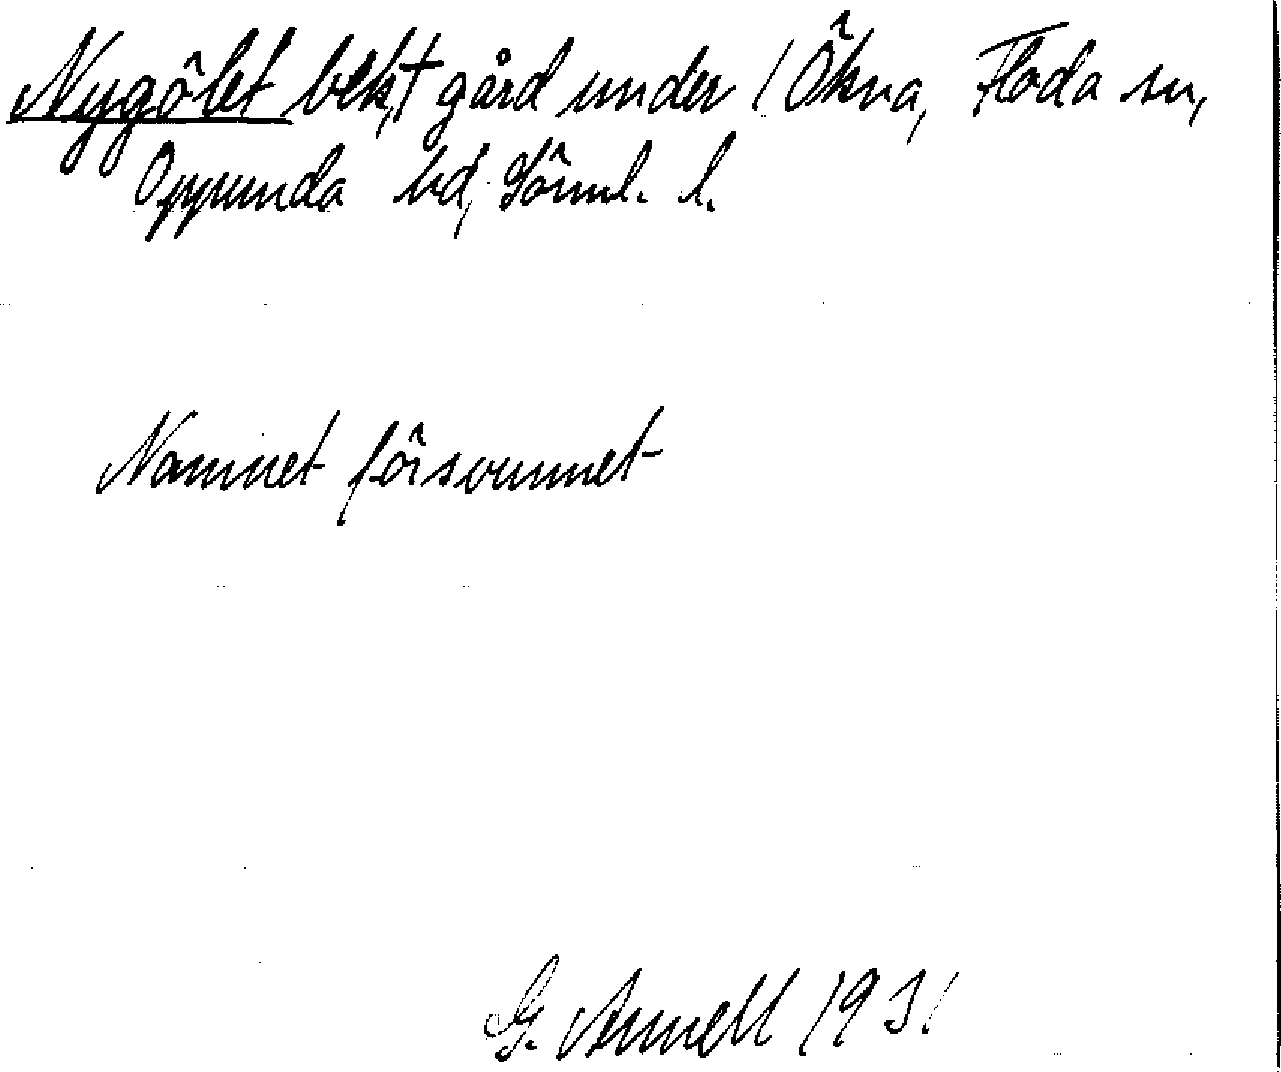 Nygölet bek,t gård under 1 Ökna, Floda sn,
Oppunda hd, Sörml. l.
Namnet försvunnet
G. Annell 1931